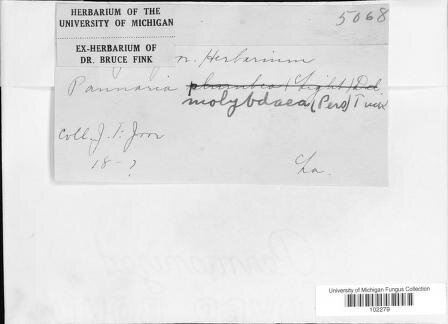 HERBARIUM OF THE
UNIVERSITY OF MICHIGAN
EX-HERBARIUM OF
DR. BRUCE FINK
5068
n. Herbarium
Pannaria plumbea (Light) Del.
molybdaea (Pers) Tuck
Coll. J. F. Joor
18-?
La.
University of Michigan Fungus Collection
102279